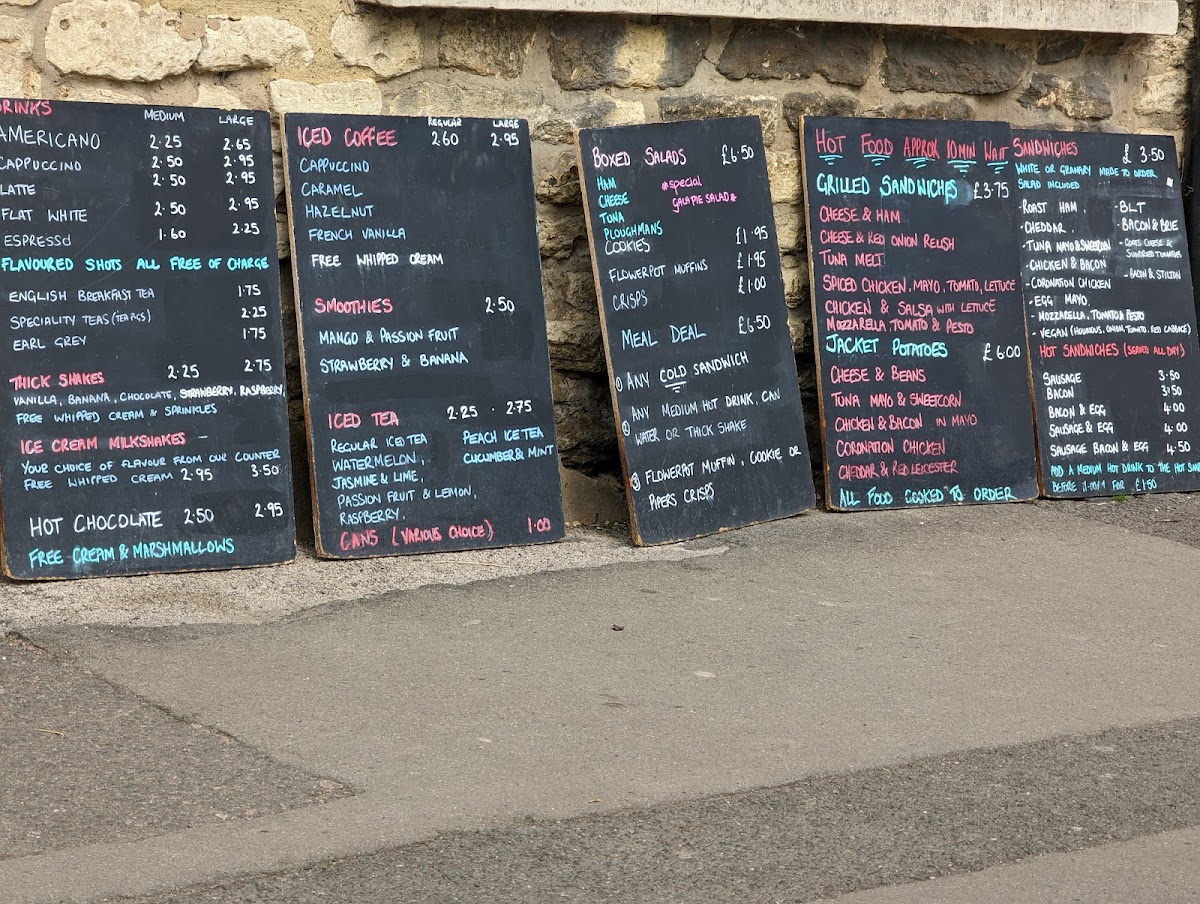 DRINKS MEDIUM LARGE
AMERICANO 2·25 2·65
CAPPUCCINO 2·50 2·95
LATTE 2·50 2·95
FLAT WHITE 2·50 2·95
ESPRESSO 1·60 2·25
FLAVOURED SHOTS ALL FREE OF CHARGE
ENGLISH BREAKFAST TEA 1·75
SPECIALITY TEAS (TEA PIGS) 2·25
EARL GREY 1·75
THICK SHAKES 2·25 2·75
VANILLA, BANANA, CHOCOLATE, STRAWBERRY, RASPBERRY
FREE WHIPPED CREAM & SPRINKLES
ICE CREAM MILKSHAKES –
YOUR CHOICE OF FLAVOUR FROM OUR COUNTER
FREE WHIPPED CREAM 2·95 3·50
HOT CHOCOLATE 2·50 2·95
FREE CREAM & MARSHMALLOWS
ICED COFFEE REGULAR 2·60 LARGE 2·95
CAPPUCCINO
CARAMEL
HAZELNUT
FRENCH VANILLA
FREE WHIPPED CREAM
SMOOTHIES 2·50
MANGO & PASSION FRUIT
STRAWBERRY & BANANA
ICED TEA 2·25 · 2·75
REGULAR ICED TEA PEACH ICE TEA
WATERMELON, CUCUMBER & MINT
JASMINE & LIME,
PASSION FRUIT & LEMON,
RASPBERRY,
CANS (VARIOUS CHOICE) 1·00
BOXED SALADS £6·50
HAM *special
CHEESE GALA PIE SALAD*
TUNA
PLOUGHMANS
COOKIES £1·95
FLOWERPOT MUFFINS £1·95
CRISPS £1·00
MEAL DEAL £6·50
① ANY COLD SANDWICH
② ANY MEDIUM HOT DRINK, CAN
WATER OR THICK SHAKE
③ FLOWERPOT MUFFIN, COOKIE OR
PIPERS CRISPS
HOT FOOD APPROX 10 MIN WAIT
GRILLED SANDWICHES £3·75
CHEESE & HAM
CHEESE & RED ONION RELISH
TUNA MELT
SPICED CHICKEN, MAYO, TOMATO, LETTUCE
CHICKEN & SALSA WITH LETTUCE
MOZZARELLA, TOMATO & PESTO
JACKET POTATOES £6·00
CHEESE & BEANS
TUNA MAYO & SWEETCORN
CHICKEN & BACON IN MAYO
CORONATION CHICKEN
CHEDDAR & RED LEICESTER
ALL FOOD COOKED TO ORDER
SANDWICHES £3·50
WHITE OR GRANARY MADE TO ORDER
SALAD INCLUDED
· ROAST HAM. - BLT
· CHEDDAR. - BACON & BRIE
- TUNA MAYO & SWEETCORN - GOATS CHEESE & SUNDRIED TOMATOES
- CHICKEN & BACON - BACON & STILTON
- CORONATION CHICKEN
- EGG MAYO,
- MOZZARELLA, TOMATO & PESTO
- VEGAN (HOUMOUS, ONION, TOMATO, RED CABBAGE)
HOT SANDWICHES (SERVED ALL DAY)
SAUSAGE 3·50
BACON 3·50
BACON & EGG 4·00
SAUSAGE & EGG 4·00
SAUSAGE BACON & EGG 4·50
ADD A MEDIUM HOT DRINK TO THE HOT
BEFORE FOR £1·50